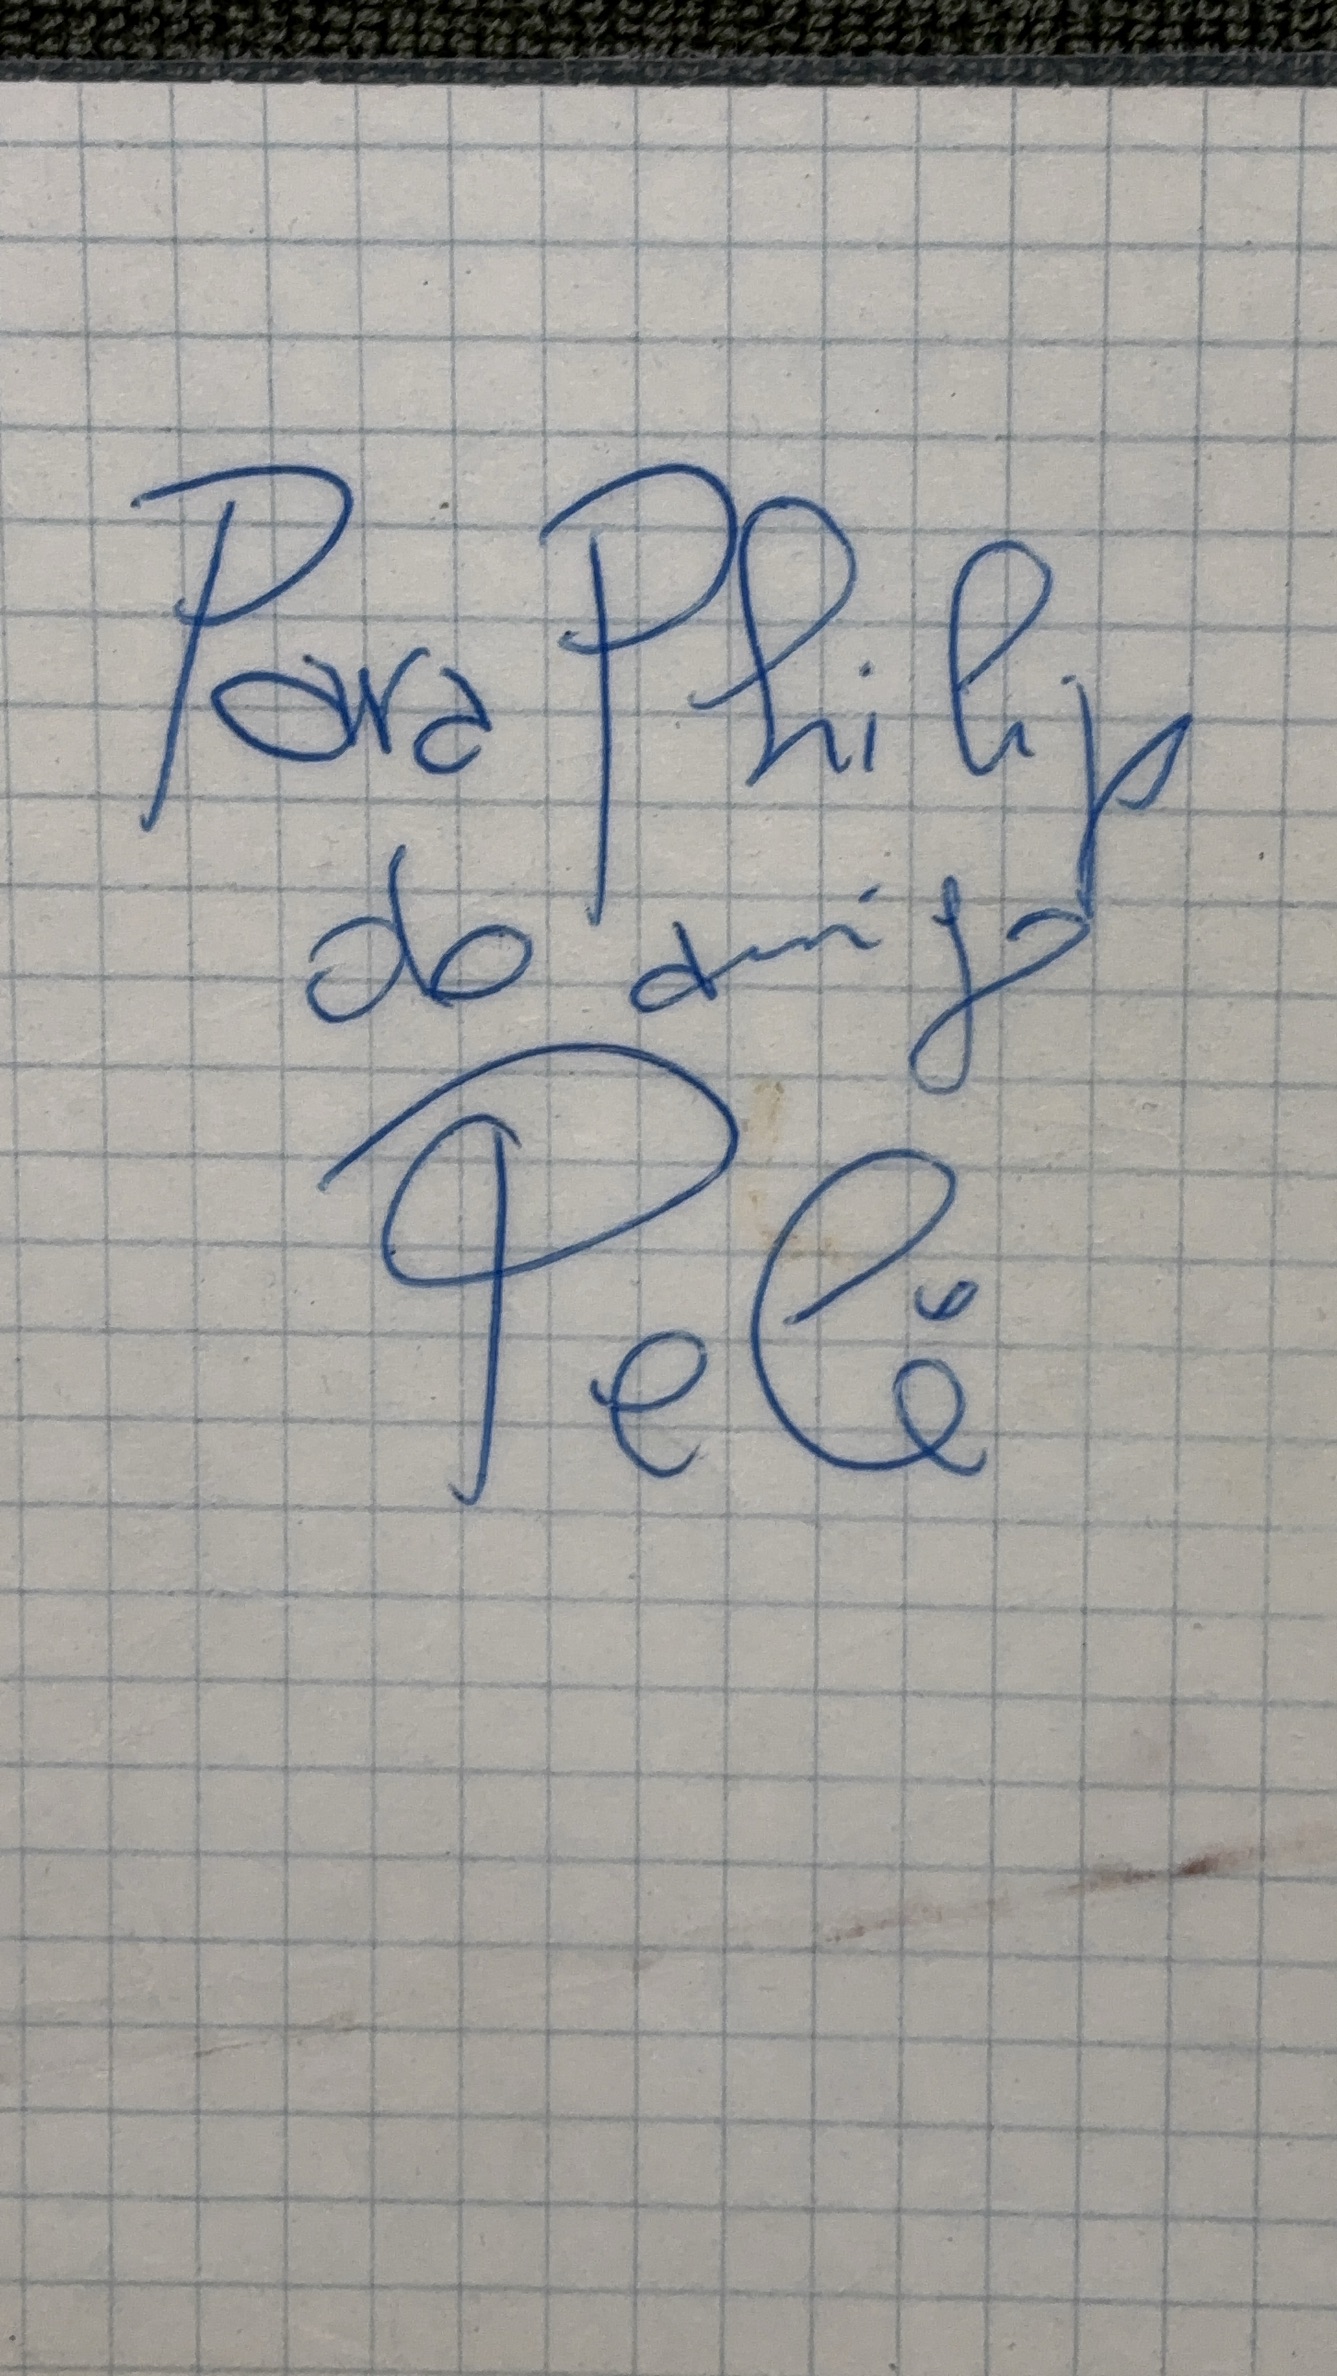 Para Philip
do amigo
Pelé